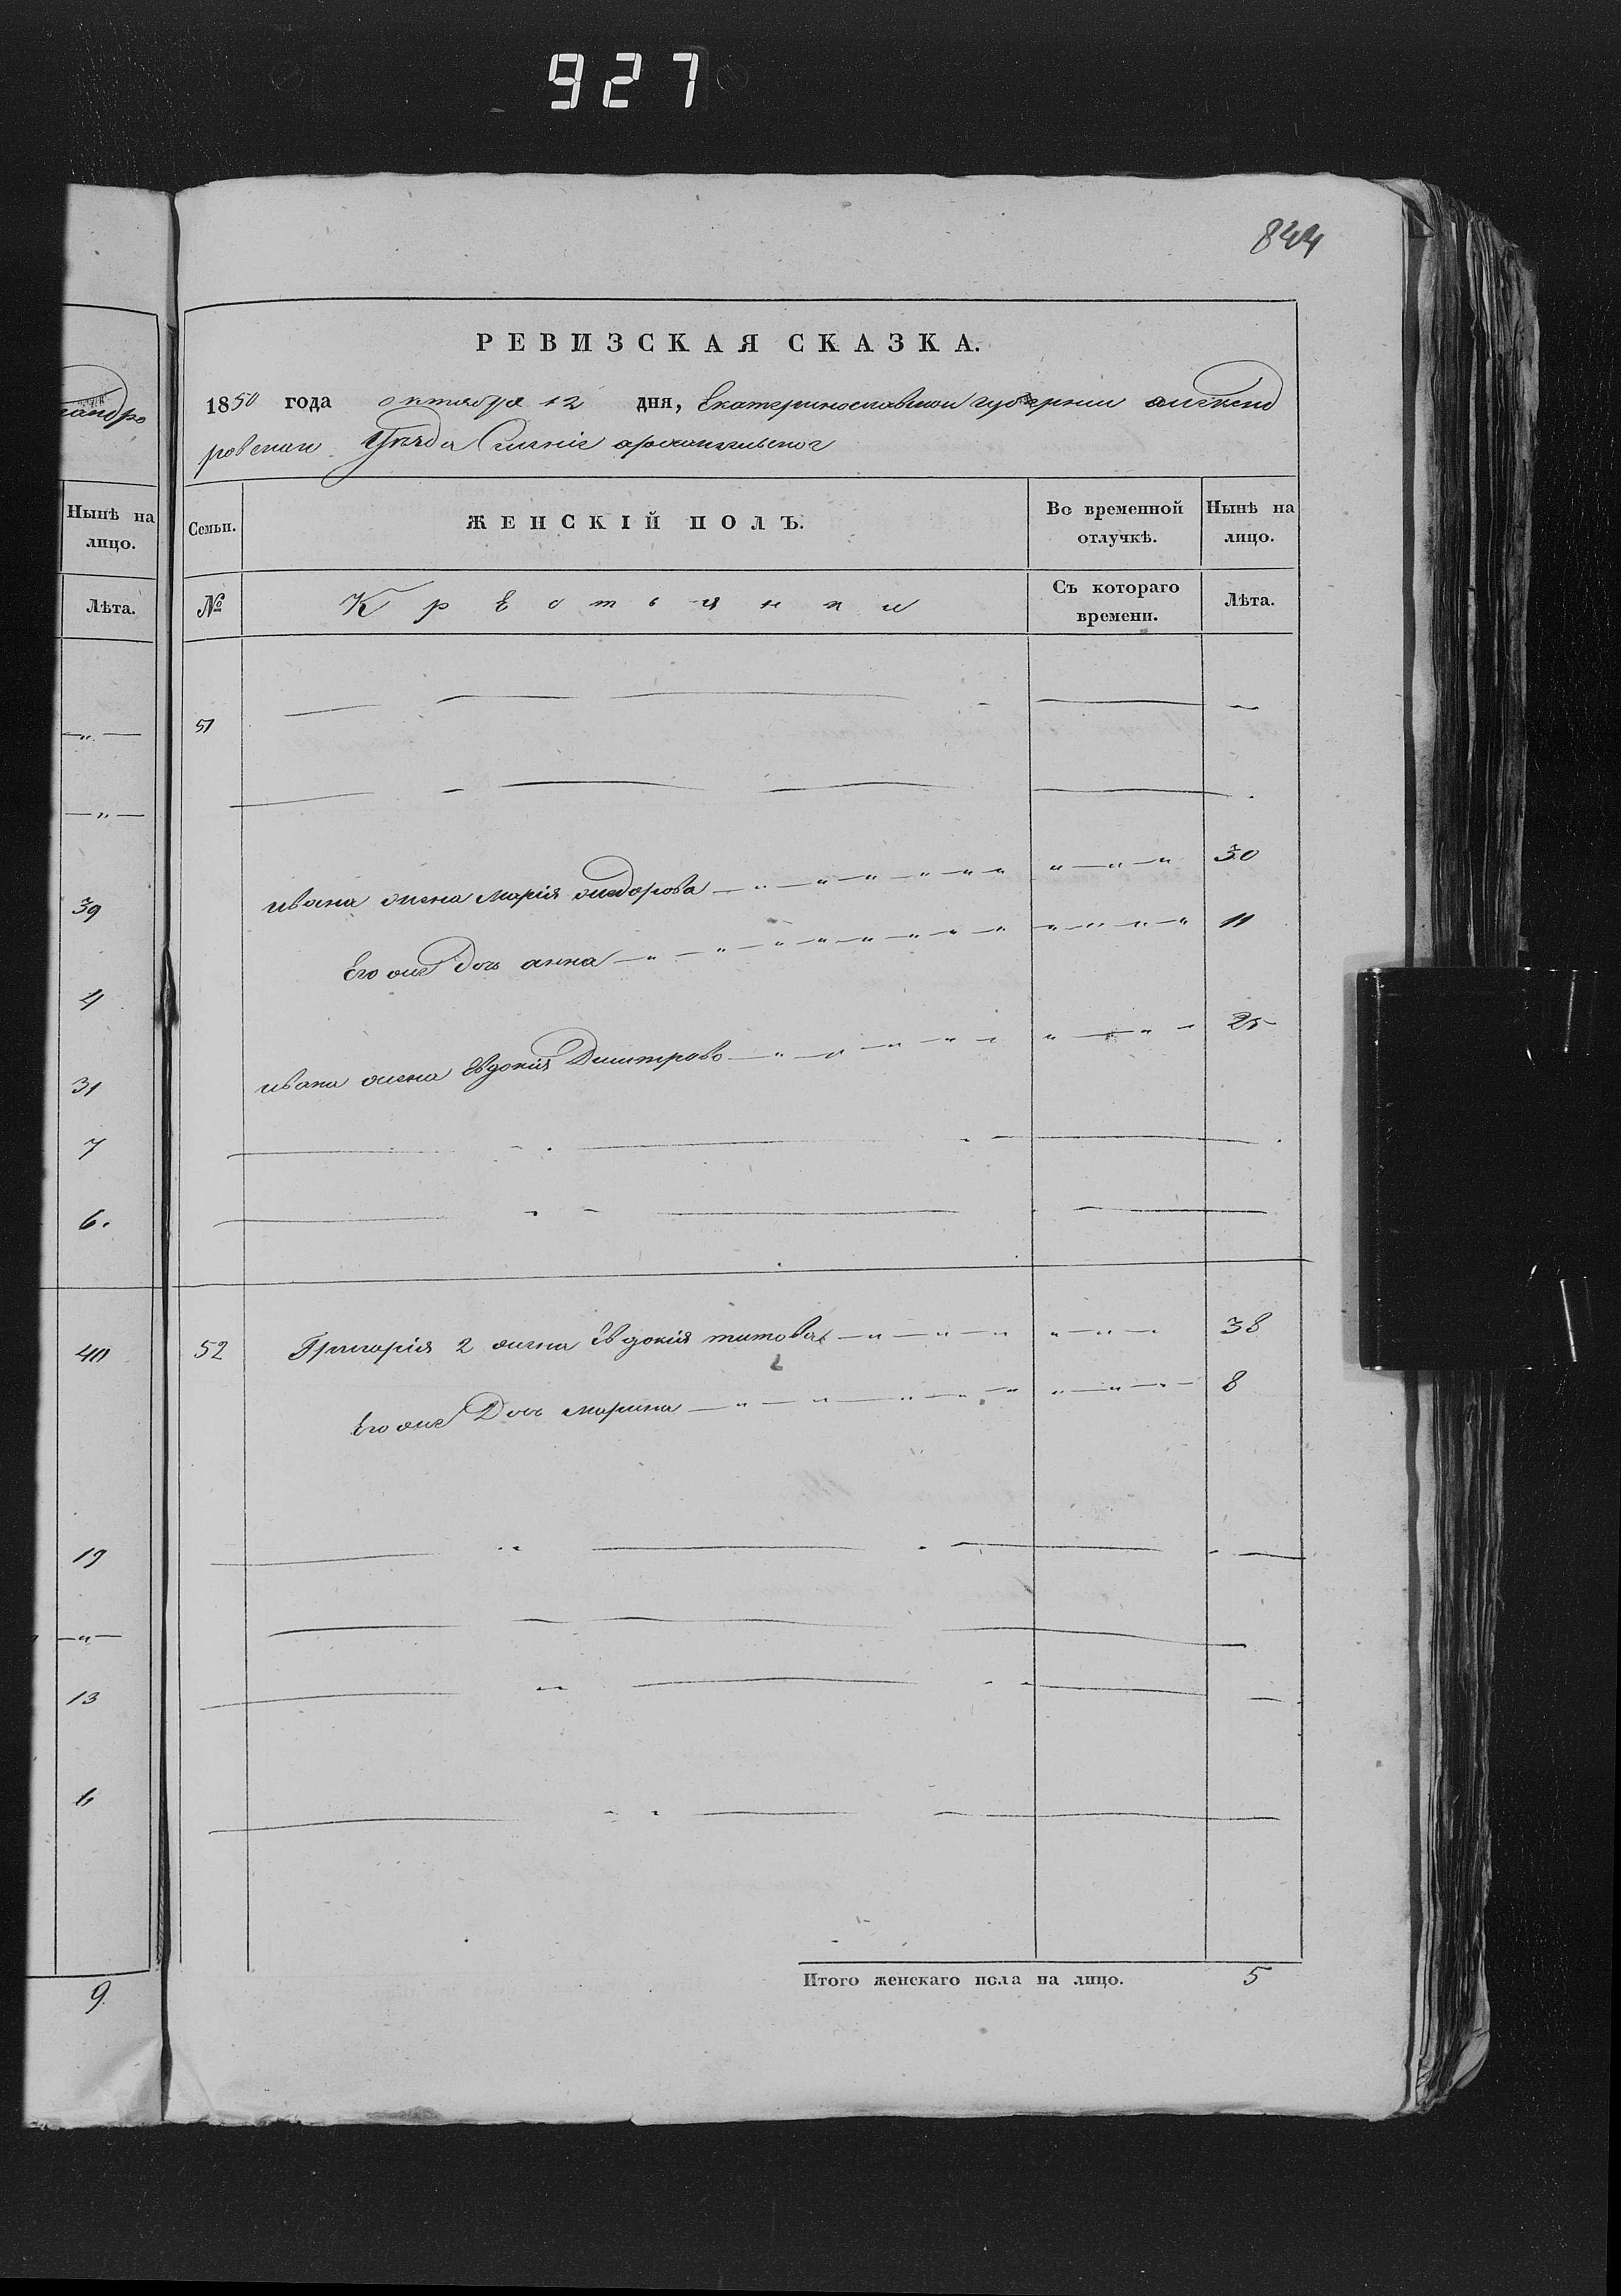 927
844
РЕВИЗСКАЯ СКАЗКА.
1850 года октября 12 дня, Екатеринославской губернии александ
ровскаго Уезда
андро
Нынѣ на лицо.
Лѣта.
Семьи.
ЖЕНСКІЙ ПОЛЪ.
Во временной отлучкѣ.
Нынѣ на лицо.
№
Крестьянки
Съ котораго времени.
Лѣта.
51
ивана жена Марія 30
39
Его же дочь анна 11
4
ивана жена Евдокия Дмитрова 25
31
7
6.
40
52 Григорія 2 жена Евдокия титова 38
Его же Дочь марина 8
19
13
6
Итого женскаго пола на лицо. 5
9.